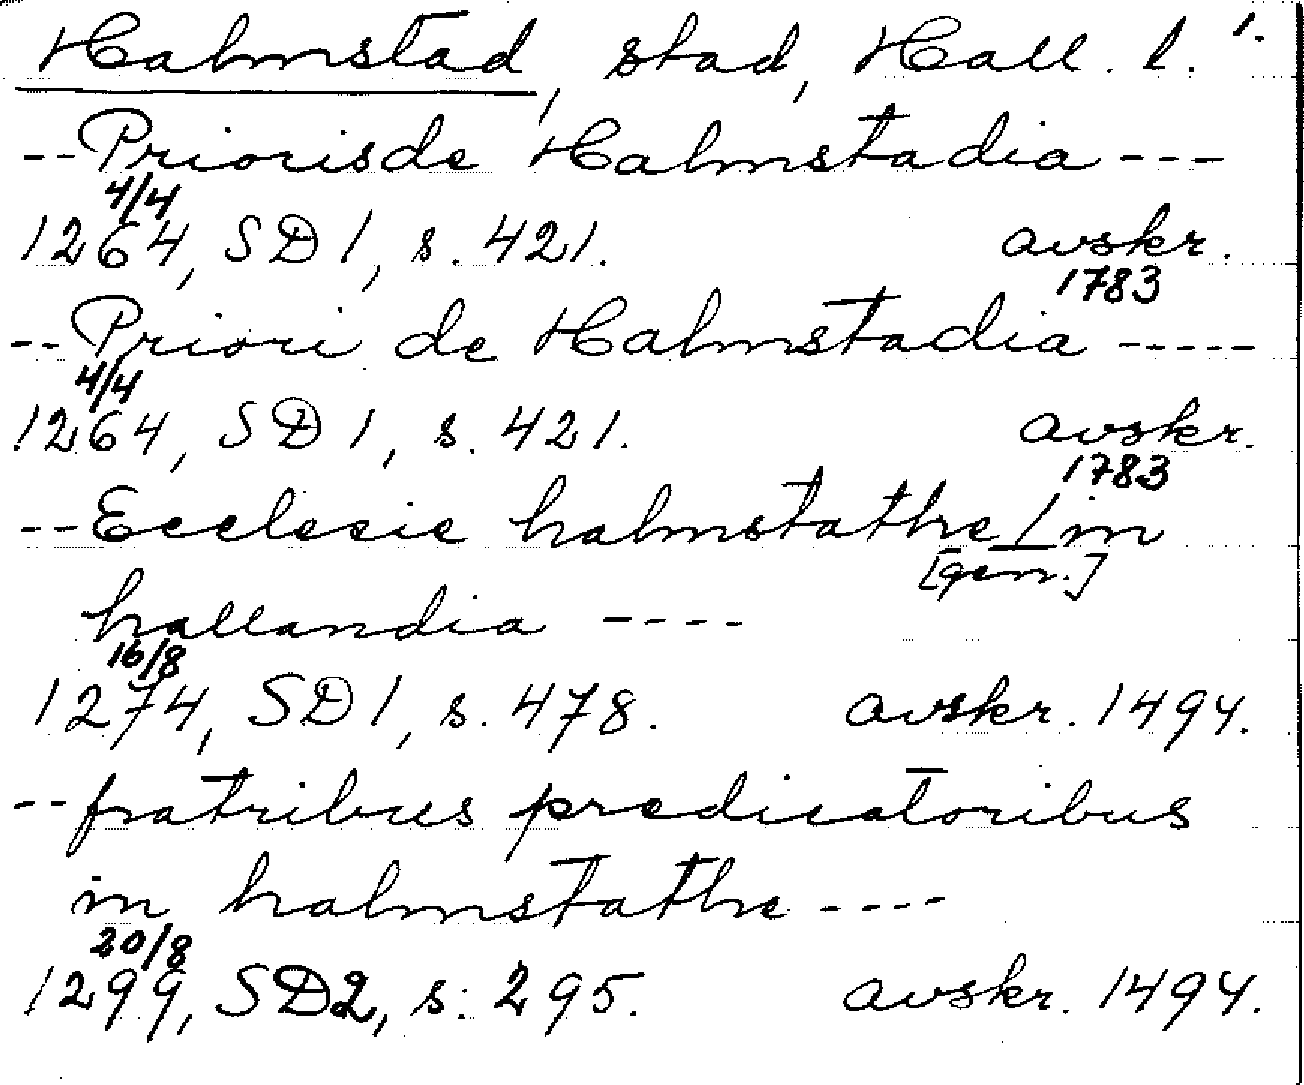 Halmstad, stad, Hall. l. 1.
--Prioris de Halmstadia ---
4/4
1264, SD 1, s. 421. avskr.
1783
--Priori de Halmstadia -----
4/4
1264, SD 1, s. 421. avskr.
1783
--Ecclesie halmstathe / in
[gen.]
hallandia ----
16/8
1274, SD 1, s. 478. avskr. 1494.
--fratribus predicatoribus
in halmstathe ----
20/8
1299, SD2, s. 295. avskr. 1494.